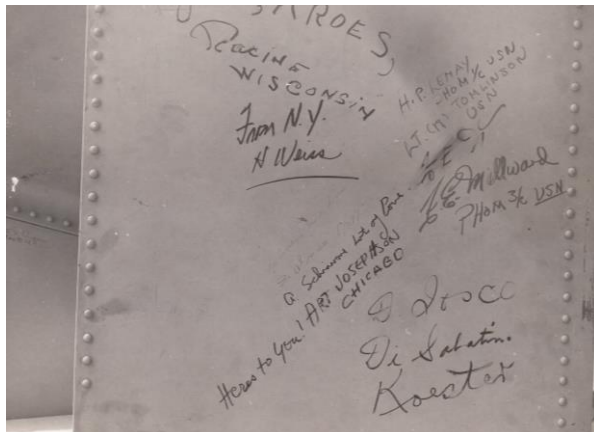 BARDES,
RACINE
WISCONSIN
From N.Y.
H Weiss
H.P. LEMAY
PHOM 1/C USN
LT. (jg) TOMLINSON
USN
E. Millward
PHOM 3/c USN
a lot of love
Heres to you! ART JOSEPHSON
CHICAGO
D Iosco
Di Sabatin.
Koester